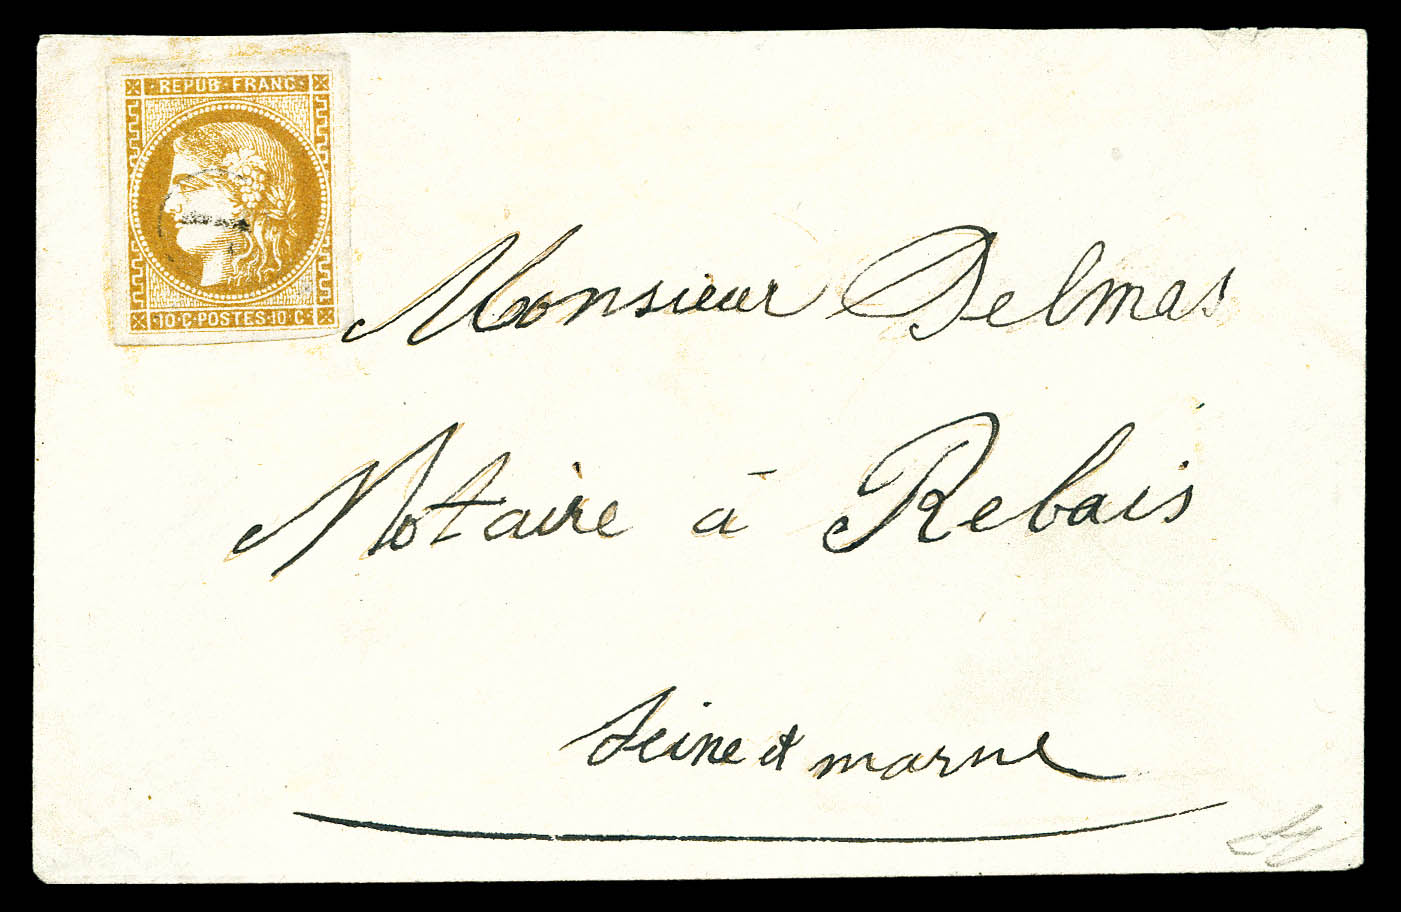 REPUB·FRANC
10·C·POSTES·10·C
Monsieur Delmas
Notaire à Rebais
Seine et marne